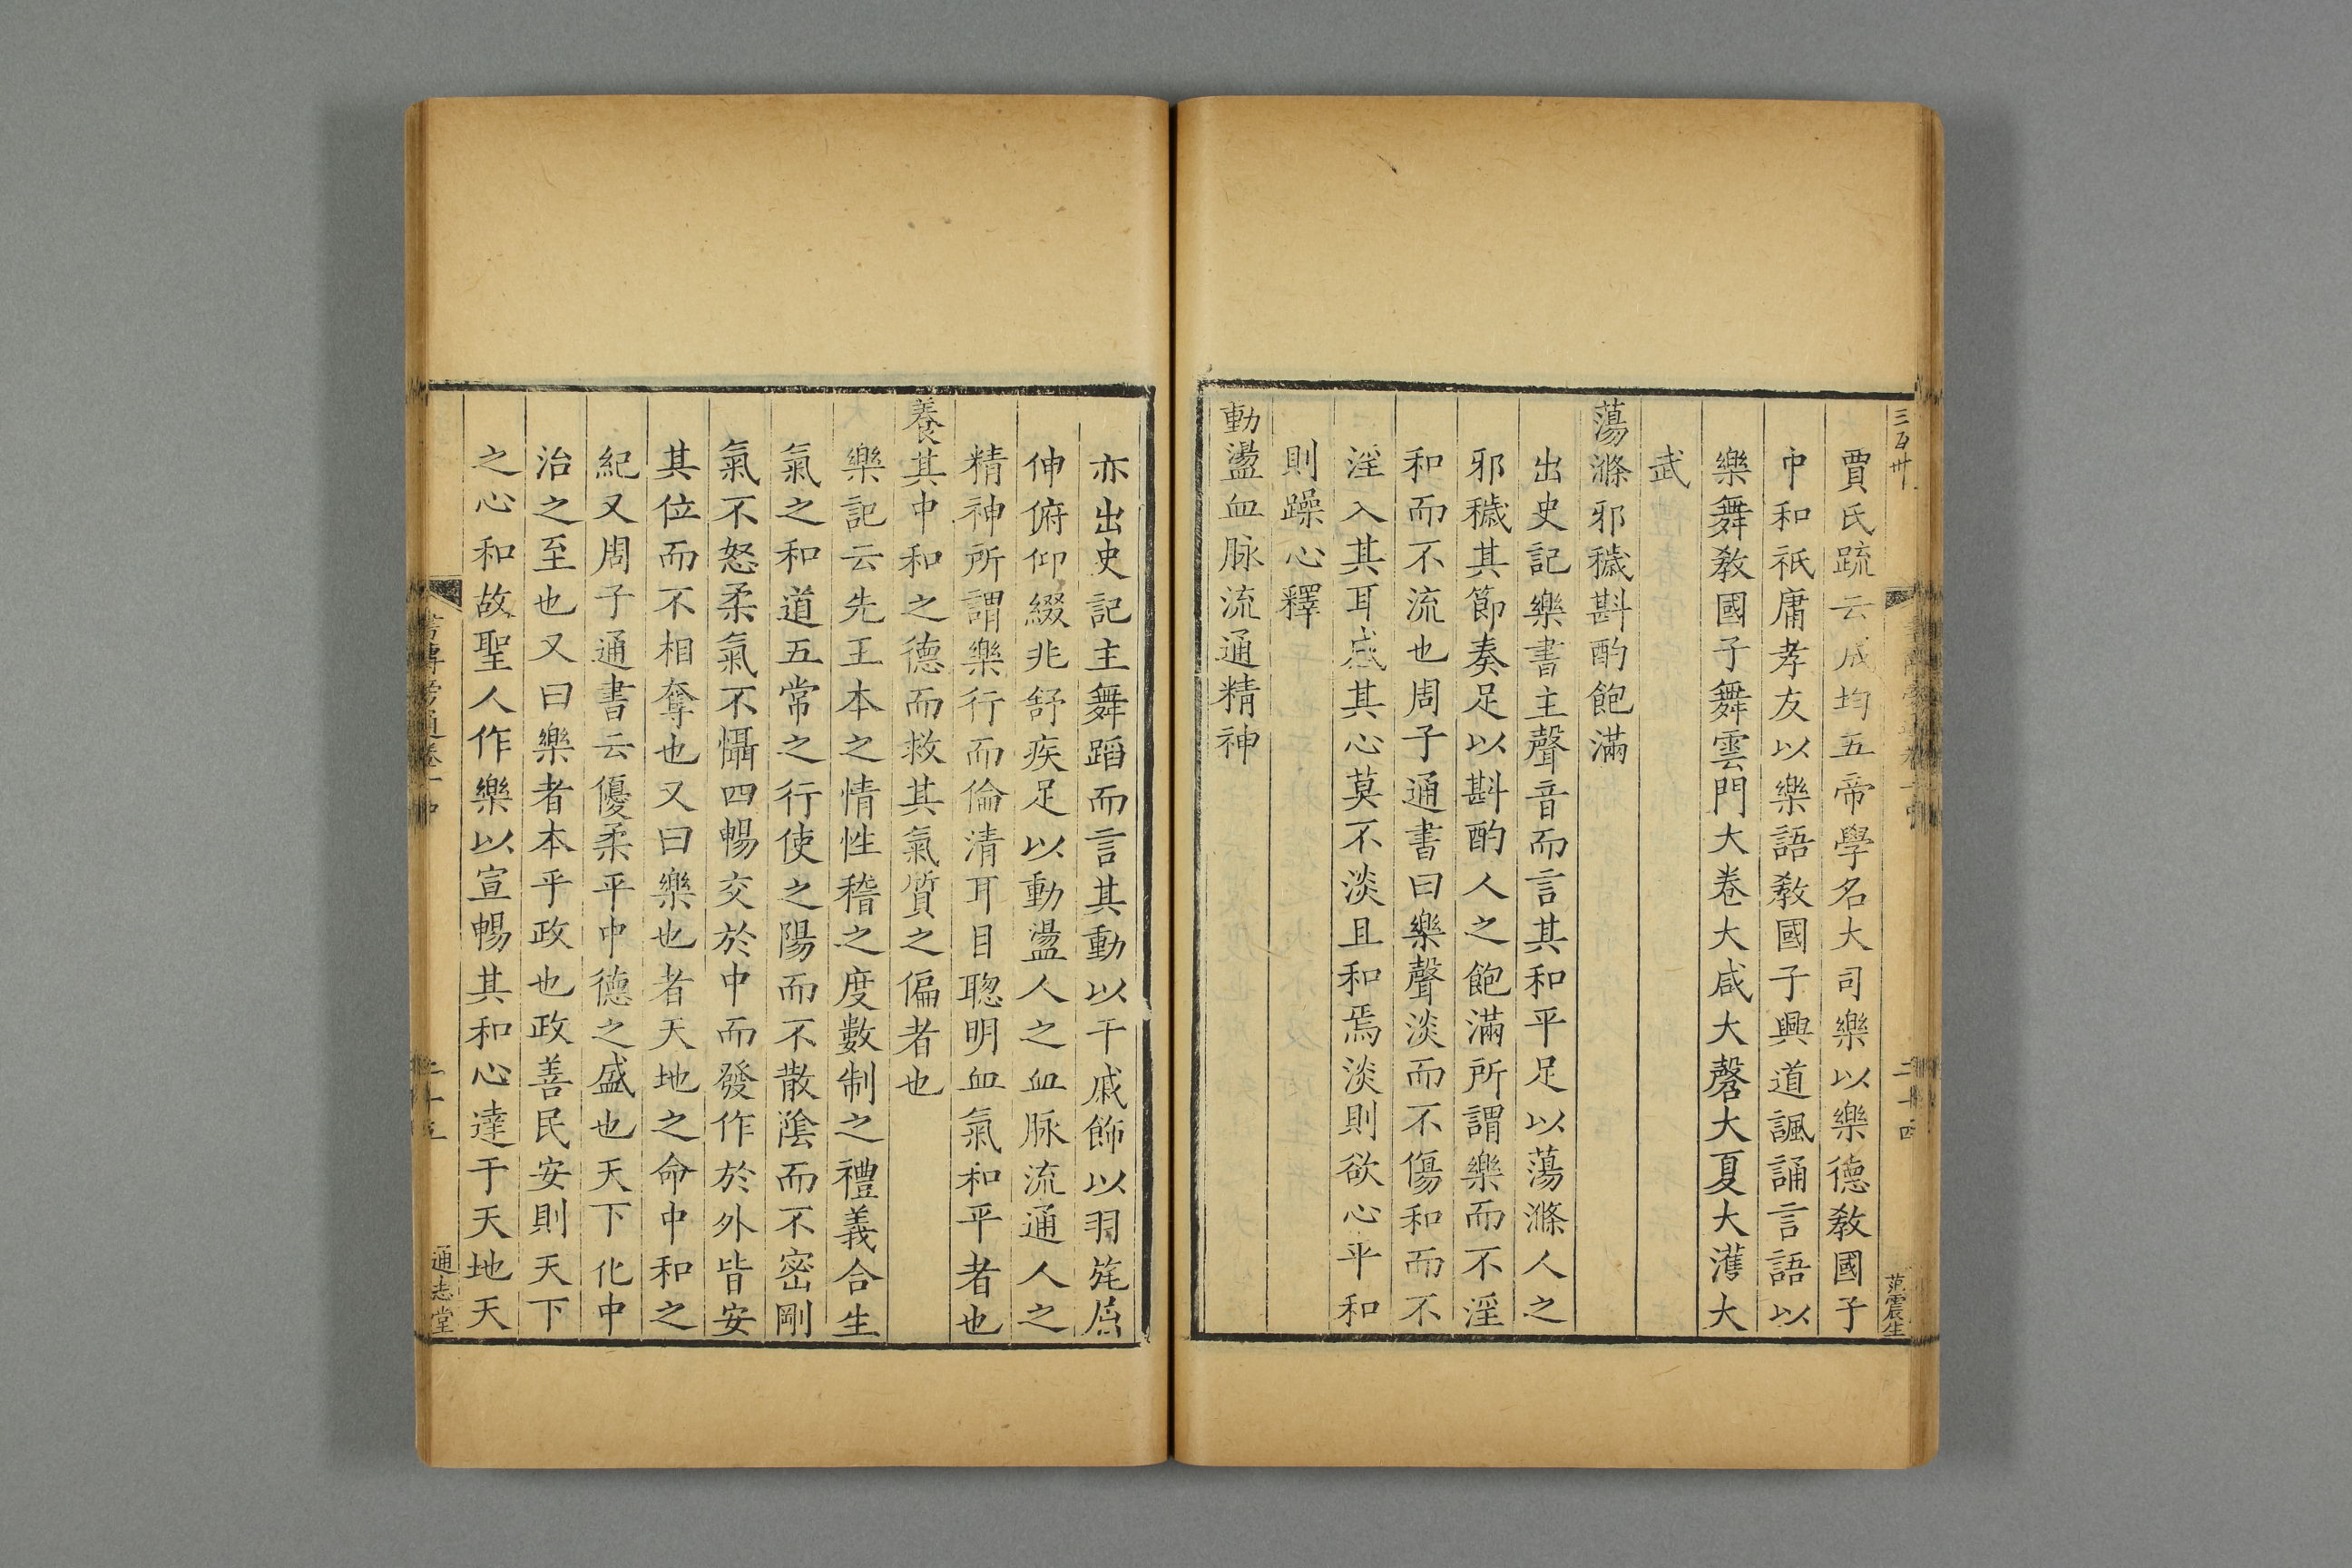 三百卅
二十四
范震生
賈氏疏云成均五帝學名大司樂以樂德敎國子
中和祇庸孝友以樂語敎國子興道諷誦言語以
樂舞敎國子舞雲門大卷大咸大磬大夏大濩大
武
蕩滌邪穢斟酌飽滿
出史記樂書主聲音而言其和平足以蕩滌人之
邪穢其節奏足以斟酌人之飽滿所謂樂而不淫
和而不流也周子通書曰樂聲淡而不傷和而不
淫入其耳感其心莫不淡且和焉淡則欲心平和
則躁心釋
動盪血脉流通精神
亦出史記主舞蹈而言其動以干戚飾以羽旄屈
伸俯仰綴兆舒疾足以動盪人之血脉流通人之
精神所謂樂行而倫清耳目聦明血氣和平者也
養其中和之德而救其氣質之偏者也
樂記云先王本之情性稽之度數制之禮義合生
氣之和道五常之行使之陽而不散隂而不密剛
氣不怒柔氣不懾四暢交於中而發作於外皆安
其位而不相奪也又曰樂也者天地之命中和之
紀又周子通書云優柔平中德之盛也天下化中
治之至也又曰樂者本乎政也政善民安則天下
之心和故聖人作樂以宣暢其和心達于天地天
書傳旁通卷一中
二十五
通志堂